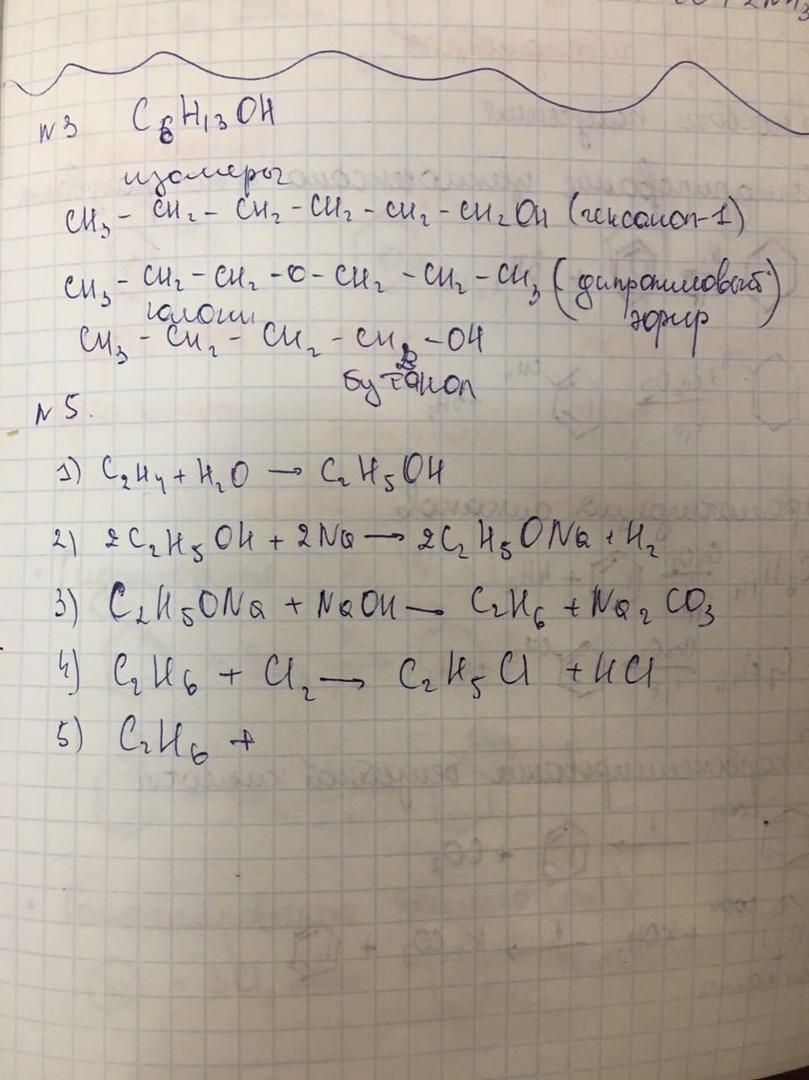 N3 C₆H₁₃OH
изомеры
CH₃ – CH₂ – CH₂ – CH₂ – CH₂ – CH₂OH (гексанол-1)
CH₃ – CH₂ – CH₂ – O – CH₂ – CH₂ – CH₃ (дипропиловый эфир)
гомологи
CH₃ – CH₂ – CH₂ – CH₂ – OH
бутанол
N5.
1) C₂H₄ + H₂O → C₂H₅OH
2) 2C₂H₅OH + 2Na → 2C₂H₅ONa + H₂
3) C₂H₅ONa + NaOH → C₂H₆ + Na₂CO₃
4) C₂H₆ + Cl₂ → C₂H₅Cl + HCl
5) C₂H₆ +